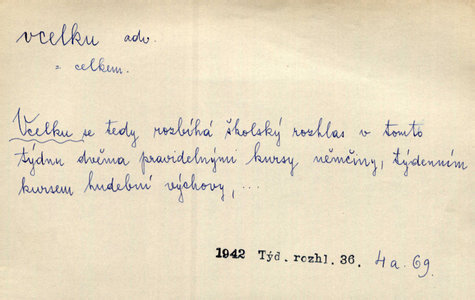 vcelku adv.
= celkem.
Vcelku se tedy rozbíhá školský rozhlas v tomto
týdnu dvěma pravidelnými kursy němčiny, týdenním
kursem hudební výchovy, ...
1942 Týd. rozhl. 36. 4a. 69.